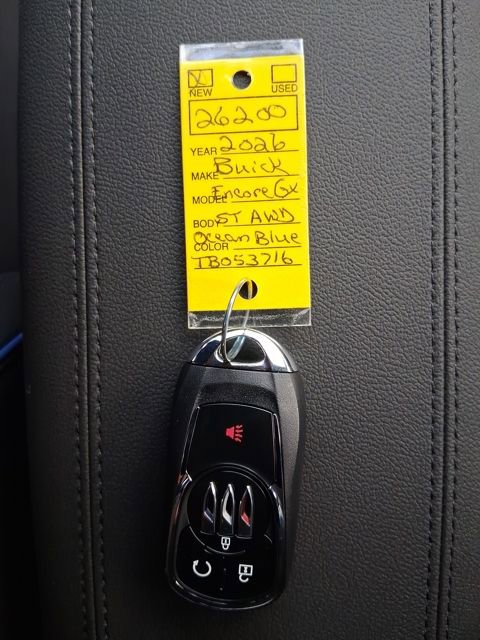 X
NEW USED
26200
YEAR 2026
MAKE Buick
MODEL Encore Gx
BODY ST AWD
COLOR Ocean Blue
TB053716